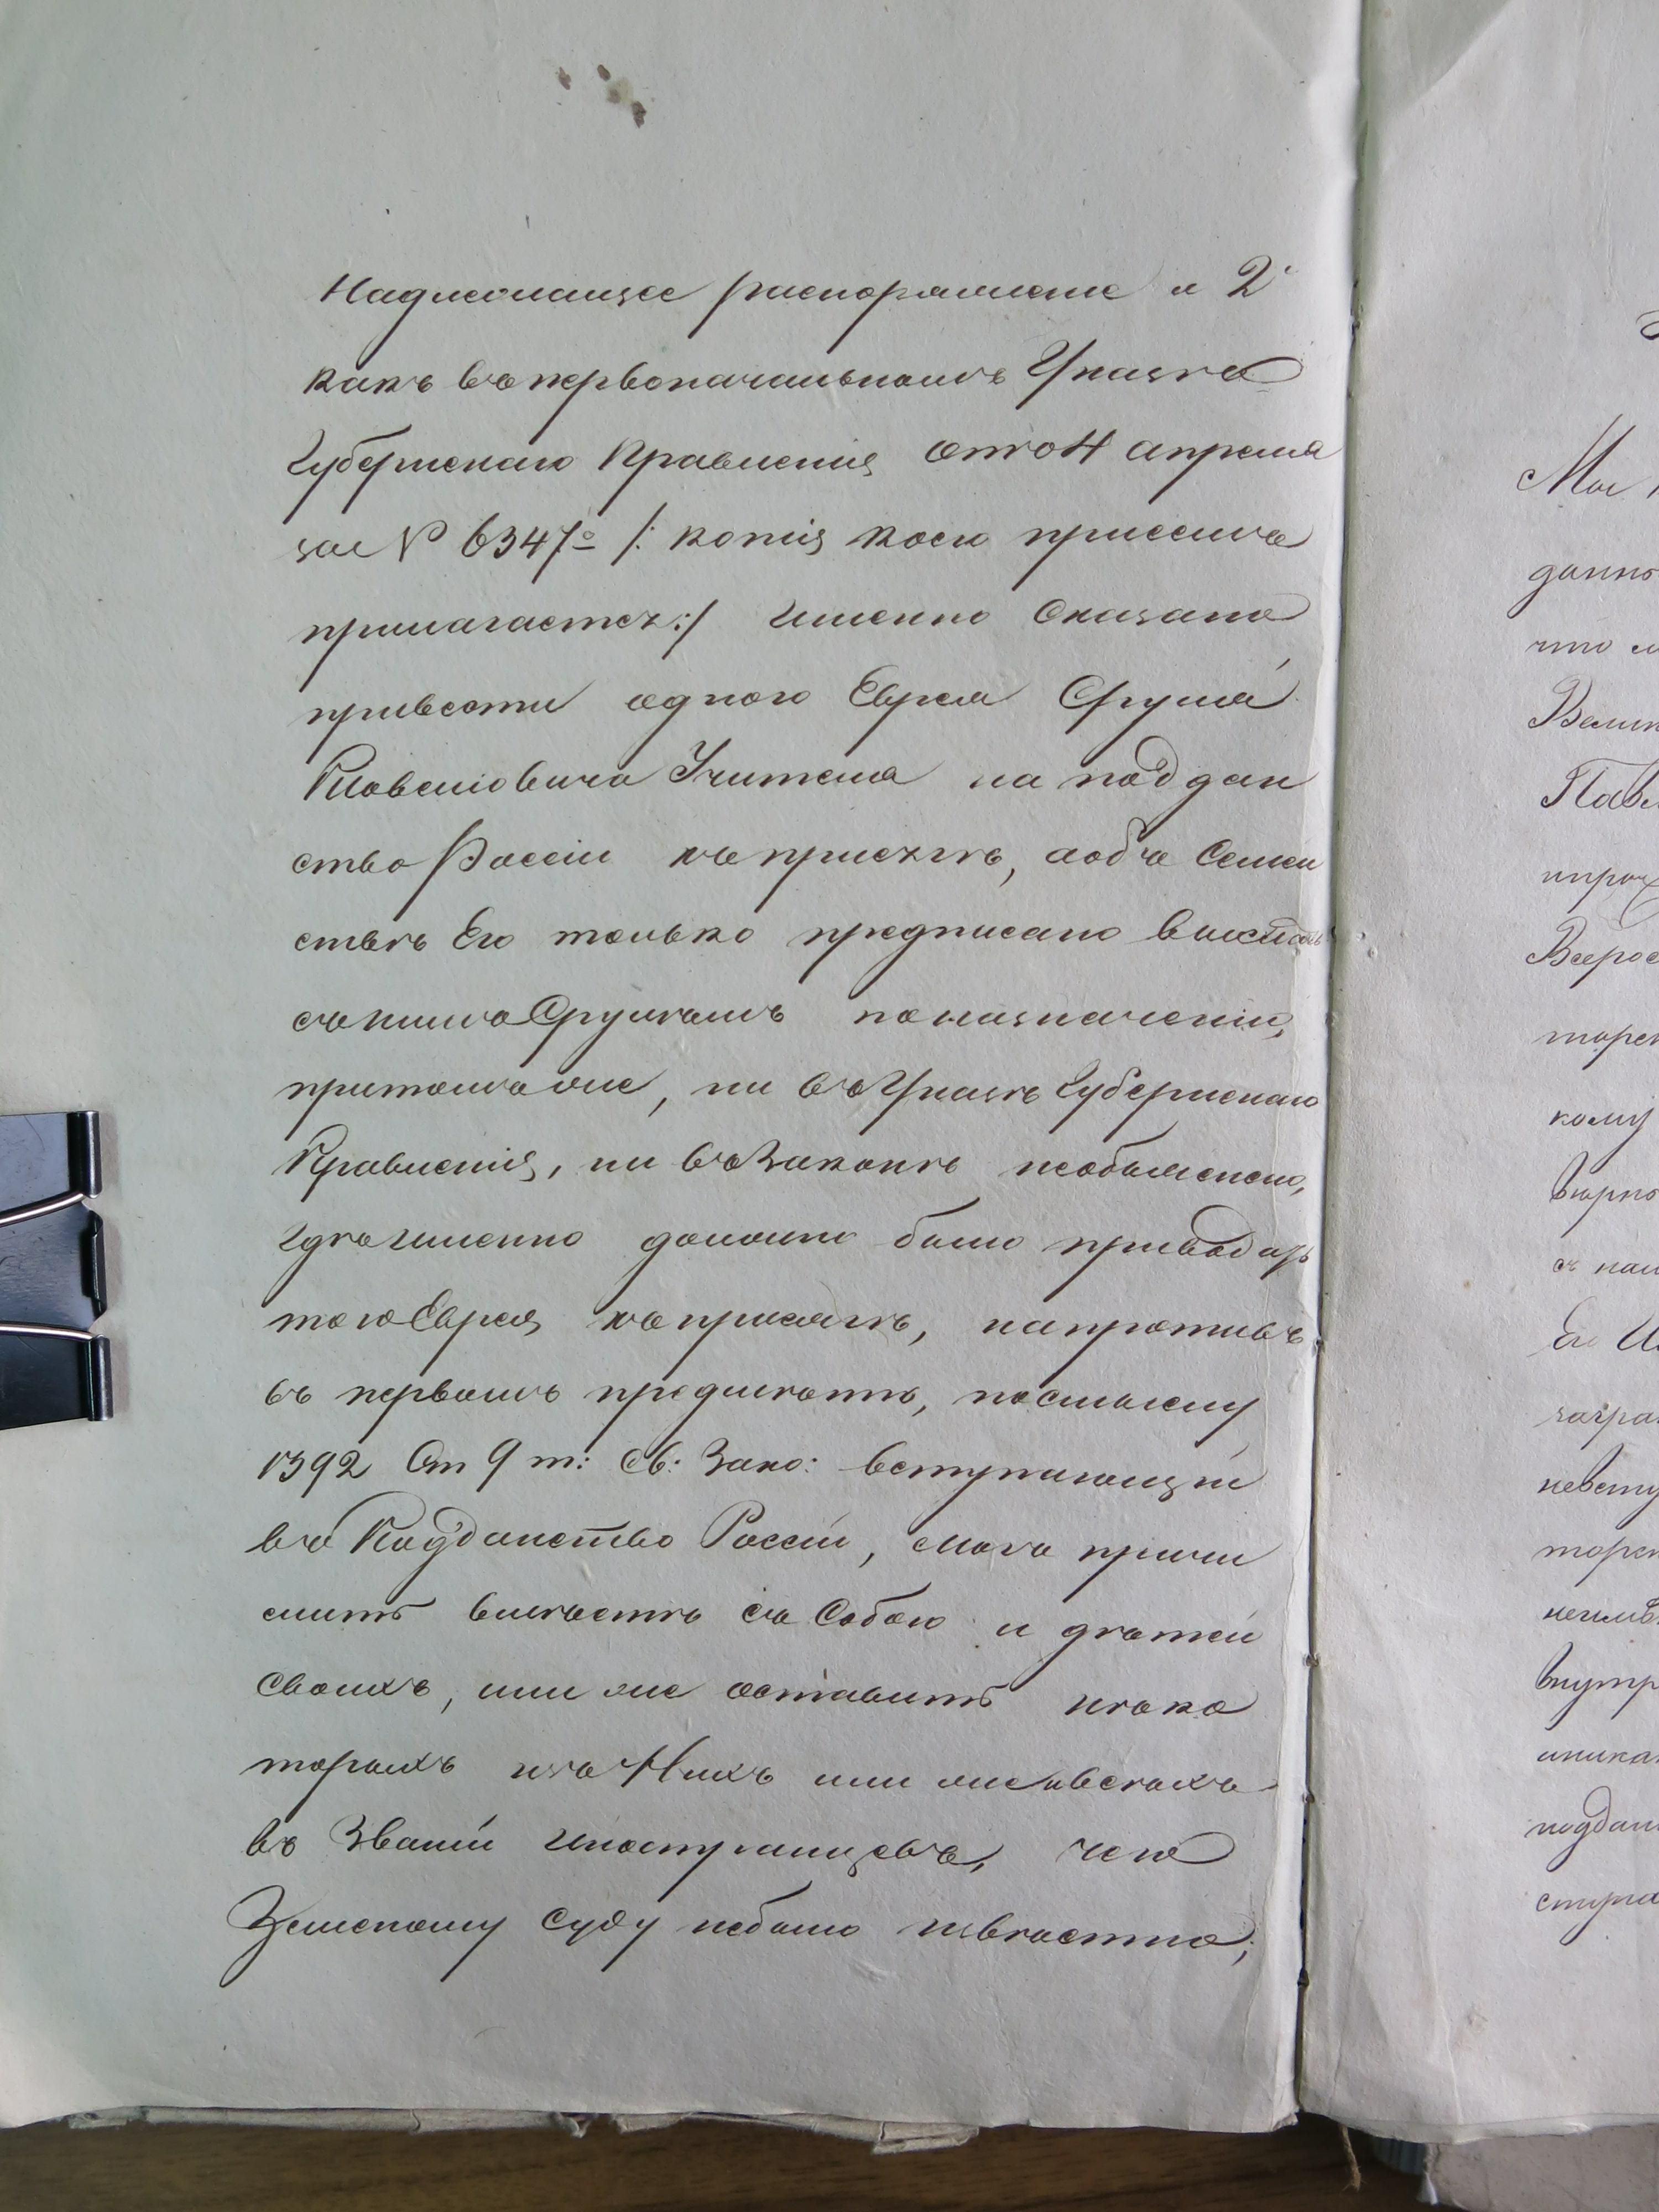 Надлежащее распоряжение и 2е
какъ въ первоначальномъ Указѣ
Губернскаго Правленія отъ 4 апреля
за № 6347о /: копія коего присемъ
прилагается :/ именно сказано
привести одного Еврея Сруля
Учителя на поддан
ство Россіи къ присягѣ, а объ Семей
ствѣ Его только предписано
съ нимъ Срулемъ по назначенію,
притомъ же, ни въ Указѣ Губернскаго
Правленія, ни въ Законѣ необъяснено,
гдѣ именно должно было
того Еврея къ присягѣ, напротивъ
въ первомъ предметѣ, по смыслу
1392 Ст 9 т: Св: Зако: вступающій
въ Подданство Россіи, могъ причи
слить вмѣстѣ съ Собою и дѣтей
Своихъ, или же оставить нѣко
торыхъ изъ Нихъ или же и всѣхъ
въ Званіи иностранцевъ, чего
Земскому Суду небыло извѣстно;
Мы
данно
что
Велик
Павл
ипроч
Всерос
торск
кому
вѣрно
Ея И
загра
невсту
торск
внутр
подда